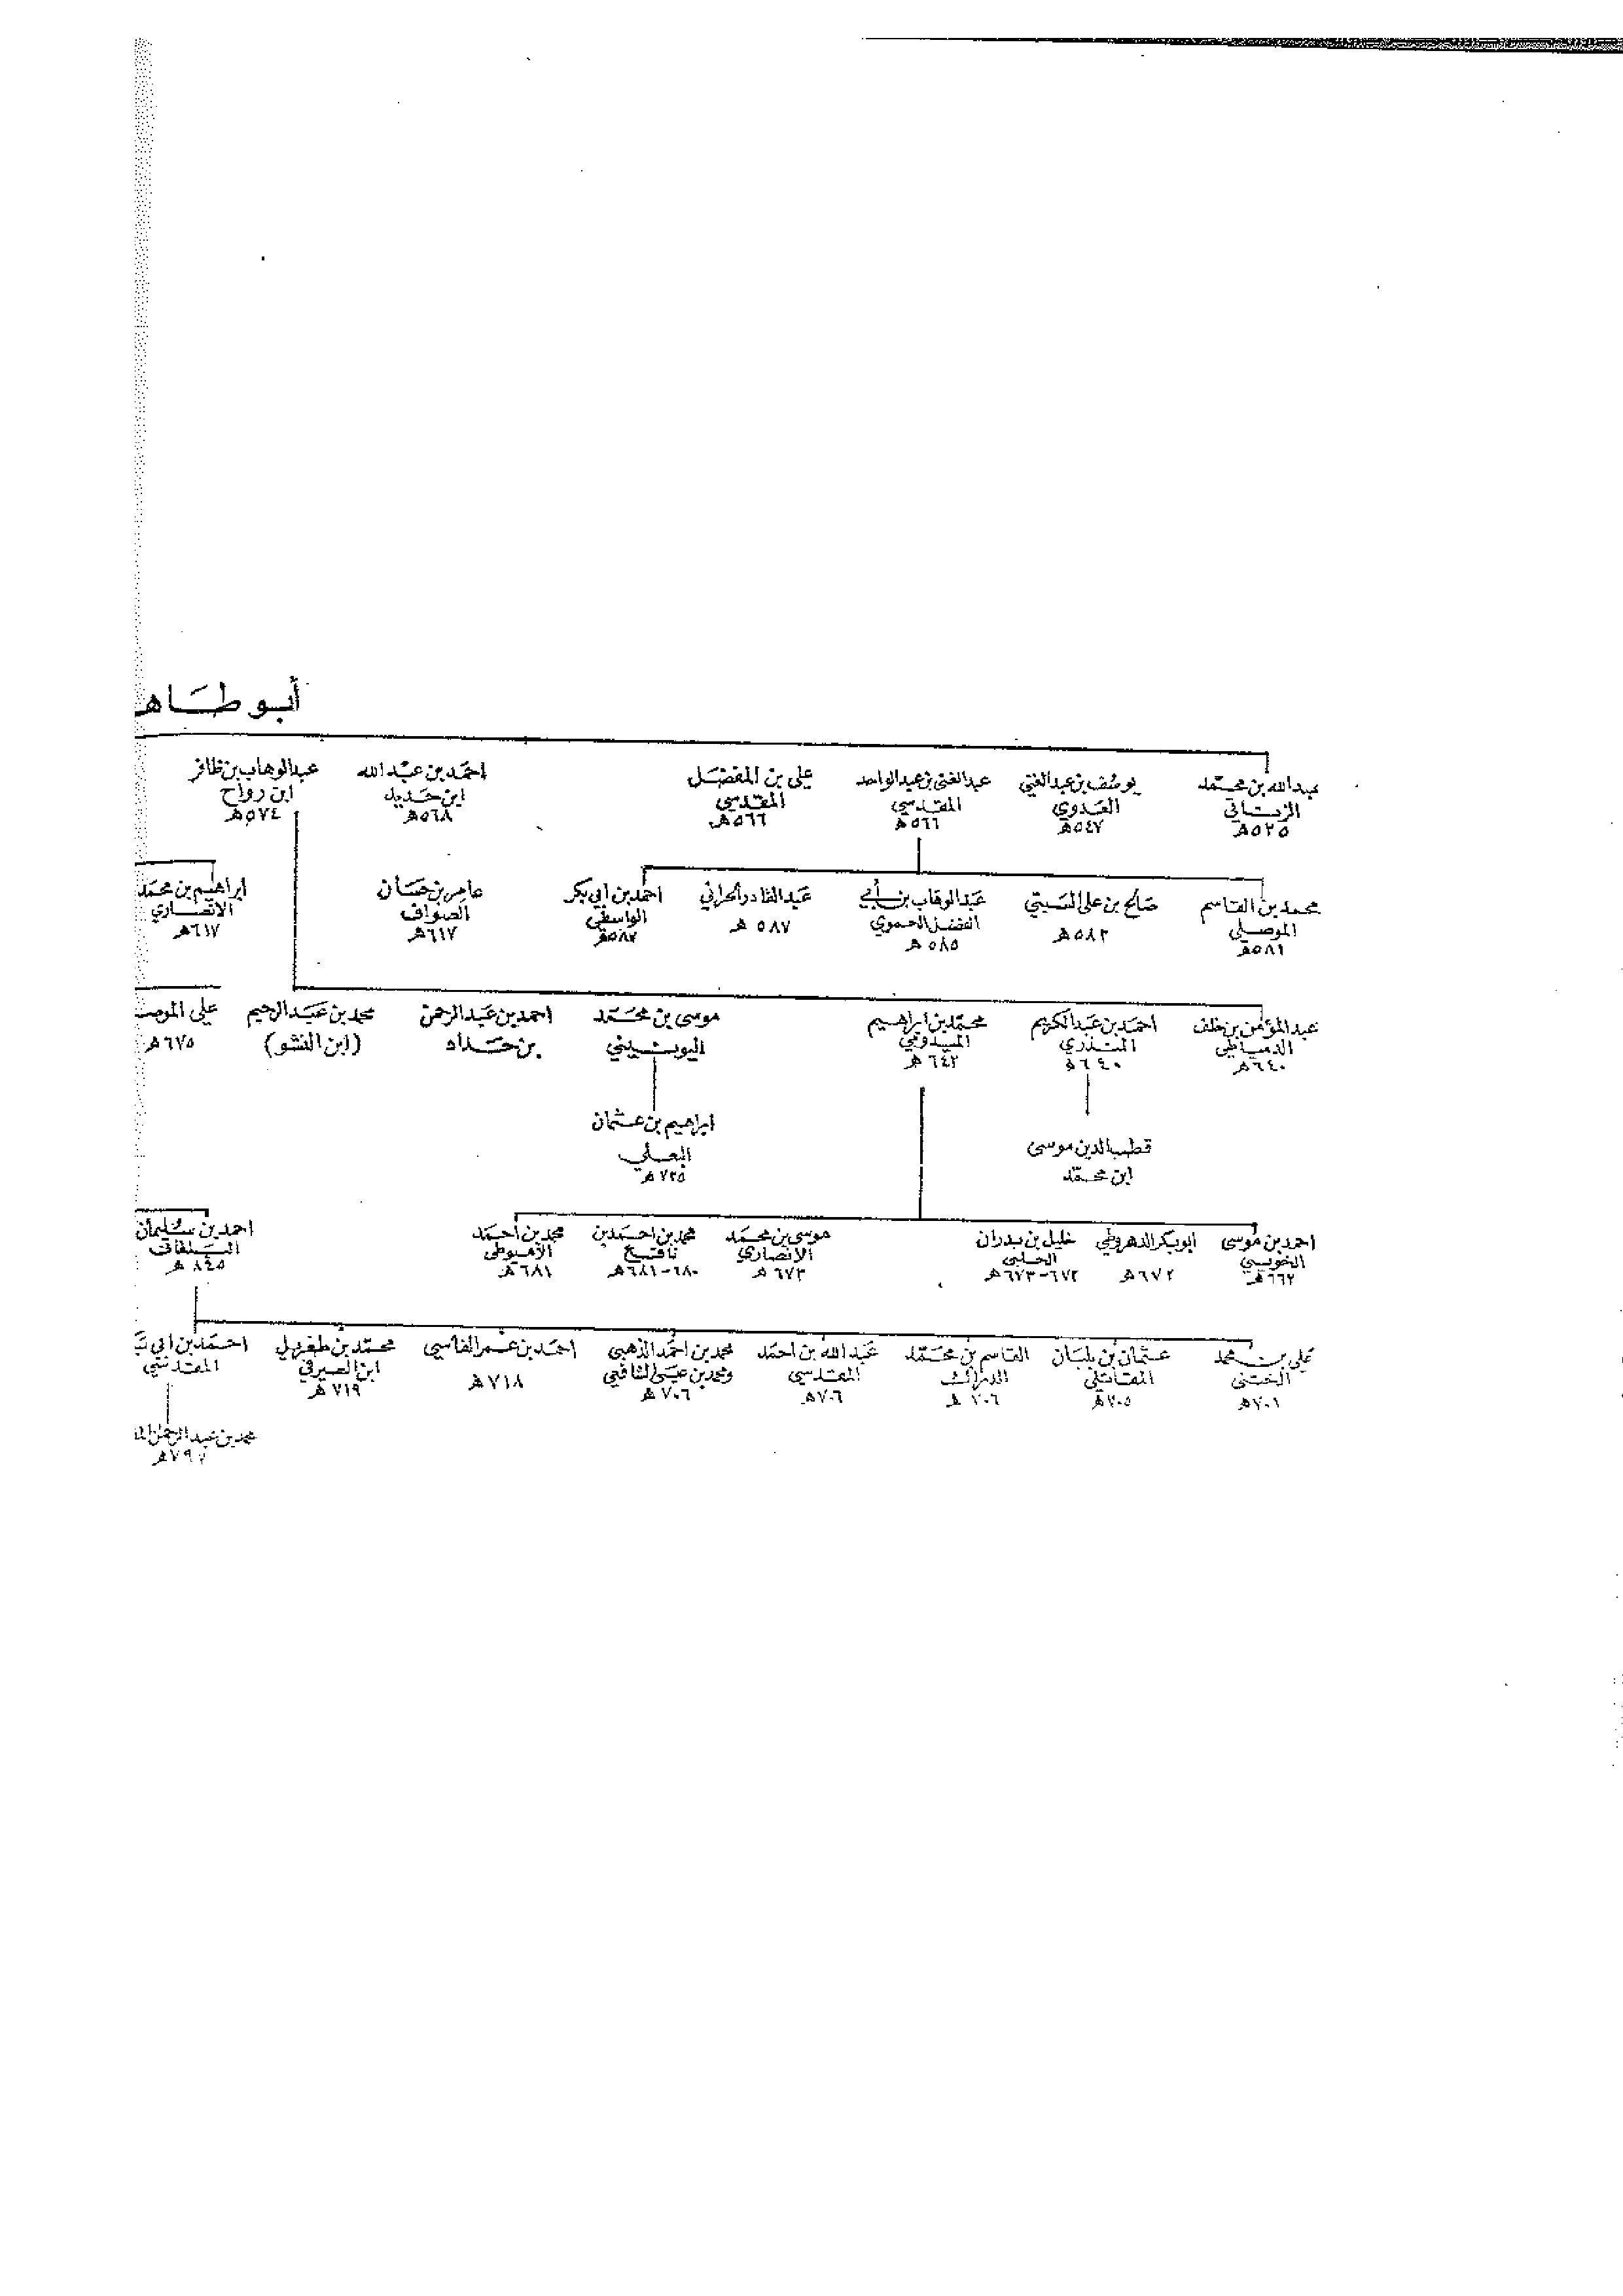 أبو طاه
عبدالله بن محمد
٥٢٥هـ
يوسف بن عبدالغني
العدوي
٥٤٧هـ
عبدالغنى بن عبدالواحد
المقدسي
٥٦٦هـ
على بن المفضل
المقدسي
٥٦٦هـ
احمد بن عبد الله
ابن حديد
٥٦٨هـ
عبدالوهاب بن ظافر
ابن رواح
٥٧٤هـ
محمد بن القاسم
الموصلي
٥٨١هـ
صالح بن على
٥٨٢هـ
عبدالوهاب بن أبي
الفضل الحموي
٥٨٥هـ
عبدالقادر الحراني
٥٨٧هـ
احمد بن ابي بكر
الواسطي
٥٨٧هـ
عامر بن حسان
الصواف
٦١٧هـ
ابراهيم بن محمد
الانصاري
٦١٧هـ
عبدالمؤمن بن خلف
الدمياطي
٦٤٠هـ
احمد بن عبدالكريم
المنذري
٦٤٠هـ
محمد بن ابراهيم
الميدومي
٦٤٢هـ
موسى بن محمد
اليونيني
احمد بن عبدالرحمن
بن حداد
محمد بن عبدالرحيم
(ابن النشو)
على الموص
٦٧٥هـ
قطب الدين موسى
ابن محمد
ابراهيم بن عثمان
البعلي
٧٢٥هـ
احمد بن موسى
الخويي
٦٦٢هـ
ابوبكر الدهروطي
٦٧٢هـ
خليل بن بدران
الحلبي
٦٧٢-٦٧٣هـ
موسى بن محمد
الانصاري
٦٧٣هـ
محمد بن احمد بن
نافع
٦٨٠-٦٨١هـ
محمد بن احمد
الأميوطي
٦٨١هـ
احمد بن سليمان
٨٤٥هـ
علي بن محمد
الختنى
٧٠١هـ
عثمان بن بلبان
المقاتلي
٧٠٥هـ
القاسم بن محمد
٧٠٦هـ
عبد الله بن احمد
المقدسي
٧٠٦هـ
محمد بن احمد الذهبي
ومحمد بن عيسى الشافعي
٧٠٦هـ
احمد بن عمر الفاسي
٧١٨هـ
محمد بن طغريل
ابن الصيرفي
٧١٩هـ
احمد بن ابي
المقدسي
محمد بن عبدالرحمن
٧٩٧هـ